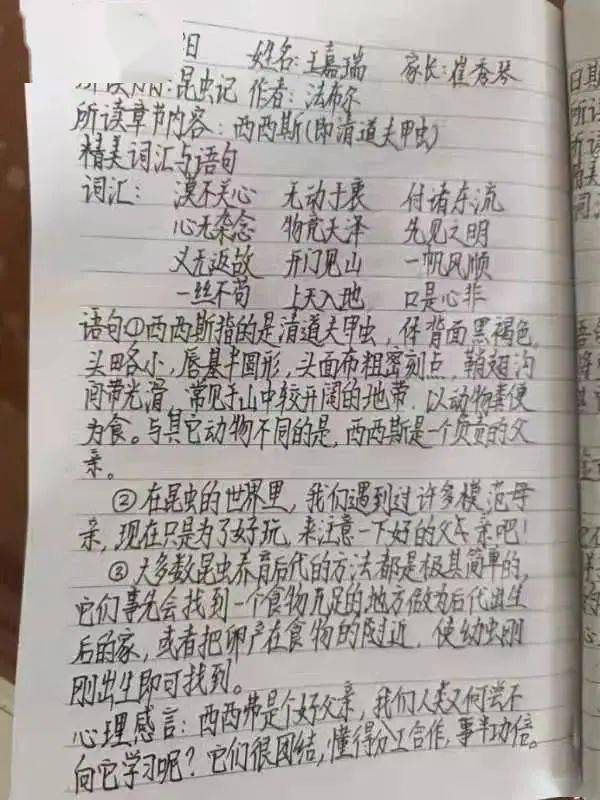 日 姓名：王嘉瑞 家长：崔秀琴
昆虫记 作者：法布尔
所读章节内容：西西斯(即清道夫甲虫)
精美词汇与语句
词汇： 漠不关心 无动于衷 付诸东流
心无杂念 物竞天泽 先见之明
义无返故 开门见山 一帆风顺
一丝不苟 上天入地 口是心非
语句①西西斯指的是清道夫甲虫，体背面黑褐色，
头略小，唇基半圆形，头面布粗密刻点，鞘翅沟
间带光滑，常见于山中较开阔的地带，以动物粪便
为食。与其它动物不同的是，西西斯是一个负责的父
亲。
②在昆虫的世界里，我们遇到过许多模范母
亲，现在只是为了好玩，来注意一下好的父亲吧！
③大多数昆虫养育后代的方法都是极其简单的，
它们事先会找到一个食物充足的地方做为后代出生
后的家，或者把卵产在食物的附近，使幼虫刚
刚出生即可找到。
心理感言：西西弗是个好父亲，我们人类又何尝不
向它学习呢？它们很团结，懂得分工合作，事半功倍。
日期
所读
所读